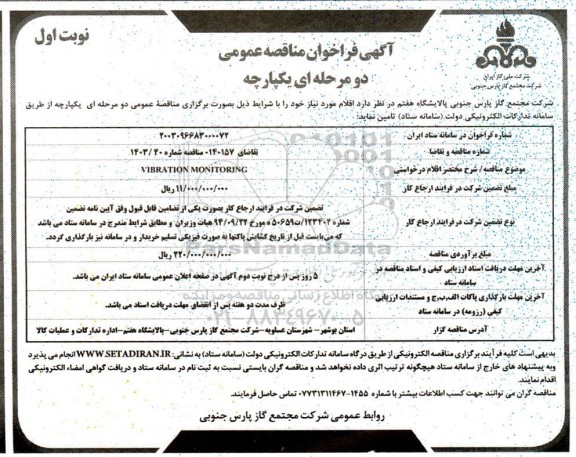 نوبت اول
آگهی فراخوان مناقصه عمومی
دو مرحله ای یکپارچه
شرکت ملی گاز ایران
شرکت مجتمع گاز پارس جنوبی
شرکت مجتمع گاز پارس جنوبی پالایشگاه هفتم در نظر دارد اقلام مورد نیاز خود را با شرایط ذیل بصورت برگزاری مناقصه عمومی دو مرحله ای یکپارچه از طریق
سامانه تدارکات الکترونیکی دولت (سامانه ستاد) تامین نماید:
شماره فراخوان در سامانه ستاد ایران
۲۰۰۳۰۹۶۶۸۳۰۰۰۰۷۲
شماره مناقصه و تقاضا
تقاضای ۰۱۴۰۱۵۷ مناقصه شماره ۴۰ /۱۴۰۳
موضوع مناقصه / شرح مختصر اقلام درخواستی
VIBRATION MONITORING
مبلغ تضمین شرکت در فرایند ارجاع کار
۱۱/۰۰۰/۰۰۰/۰۰۰ ریال
نوع تضمین شرکت در فرایند ارجاع کار
تضمین شرکت در فرایند ارجاع کار بصورت یکی از تضامین قابل قبول وفق آیین نامه تضمین
شماره ۱۲۳۴۰۲/ت۵۰۶۵۹ ه مورخ ۹۴/۰۹/۲۲ هیات وزیران و مطابق شرایط مندرج در سامانه ستاد می باشد
که می بایست قبل از تاریخ گشایش پاکتها به صورت فیزیکی تسلیم خریدار و در سامانه نیز بارگذاری گردد.
مبلغ برآوردی مناقصه
۲۲۰/۰۰۰/۰۰۰/۰۰۰ ریال
آخرین مهلت دریافت اسناد ارزیابی کیفی و اسناد مناقصه در
سامانه ستاد
۵ روز پس از درج نوبت دوم آگهی در صفحه اعلان عمومی سامانه ستاد ایران می باشد.
آخرین مهلت بارگذاری پاکات الف،ب،ج و مستندات ارزیابی
کیفی (رزومه) در سامانه ستاد
ظرف مدت دو هفته پس از انقضای مهلت دریافت اسناد می باشد.
آدرس مناقصه گزار
استان بوشهر - شهرستان عسلویه-شرکت مجتمع گاز پارس جنوبی-پالایشگاه هفتم-اداره تدارکات و عملیات کالا
بدیهی است کلیه فرآیند برگزاری مناقصه الکترونیکی از طریق درگاه سامانه تدارکات الکترونیکی دولت (سامانه ستاد) به نشانی: WWW.SETADIRAN.IR انجام می پذیرد
وبه پیشنهاد های خارج از سامانه ستاد هیچگونه ترتیب اثری داده نخواهد شد و مناقصه گران بایستی نسبت به ثبت نام در سامانه ستاد و دریافت گواهی امضاء الکترونیکی
اقدام نمایند.
مناقصه گران می توانند جهت کسب اطلاعات بیشتر با شماره ۱۴۵۵-۰۷۷۳۱۳۱۱۴۶۷ تماس حاصل فرمایند.
روابط عمومی شرکت مجتمع گاز پارس جنوبی
ParsNamadData
۰۲۱-۸۸۳۴۹۶۷۰-۵